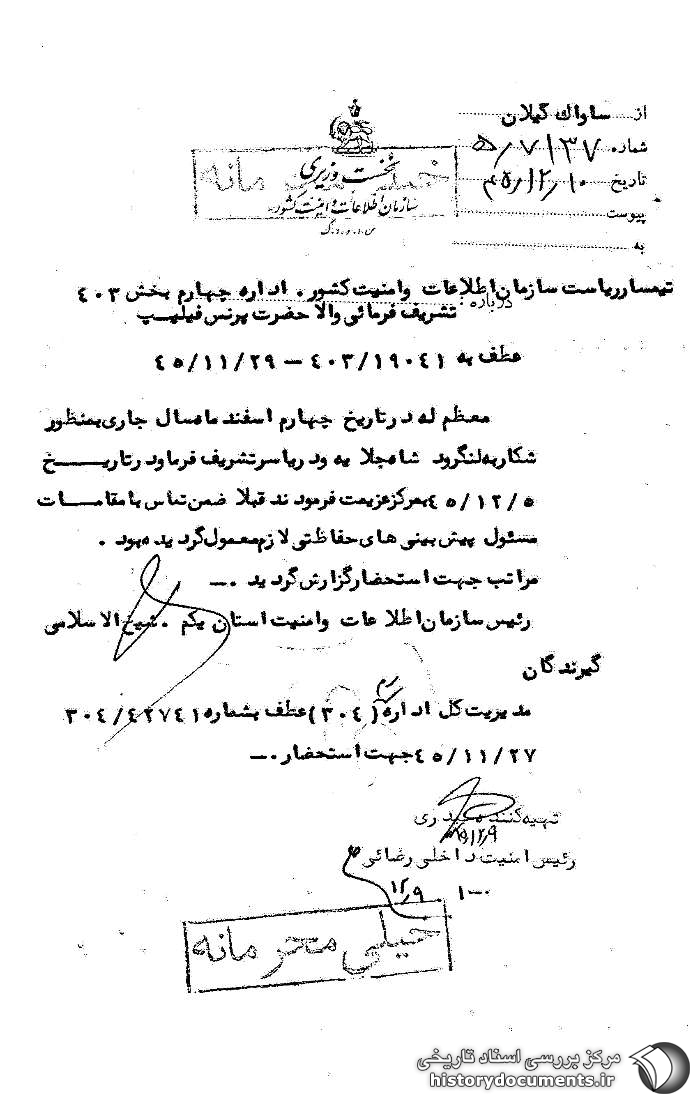 از ساواك گيلان
شماره ۷۱۳۷/ه
تاريخ ۴۵/۱۲/۱۰
پيوست
به
نخست وزيرى
سازمان اطلاعات و امنيت كشور
س.ا.و.ا.ك
خيلى محرمانه
تيمسار رياست سازمان اطلاعات وامنيت كشور . اداره چهارم بخش ۴۰۳
درباره : تشريف فرمائى والا حضرت پرنس فيليپ
عطف به ۴۰۳/۱۹۰۴۱ – ۴۵/۱۱/۲۹
معظم له در تاريخ چهارم اسفند ماه سال جارى بمنظور
شكار به لنگرود شاه مجلا يه ودرياسر تشريف فرما ودر تاريخ
۴۵/۱۲/۵ بمركز عزيمت فرمودند قبلا ضمن تماس با مقامات
مسئول پيش بينى هاى حفاظتى لازم معمول گرديده بود .
مراتب جهت استحضار گزارش گرديد .ـ
رئيس سازمان اطلاعات وامنيت استان يكم . شيخ الاسلامى
گيرندگان
مديريت كل اداره سوم (۳۰۴) عطف بشماره ۳۰۴/۴۲۷۴۱
۴۵/۱۱/۲۷ جهت استحضار .ـ
تهيه كننده حيدرى
۴۵/۱۲/۹
رئيس امنيت داخلى رضائى
۱۲/۹
خيلى محرمانه
مركز بررسى اسناد تاريخى
historydocuments.ir